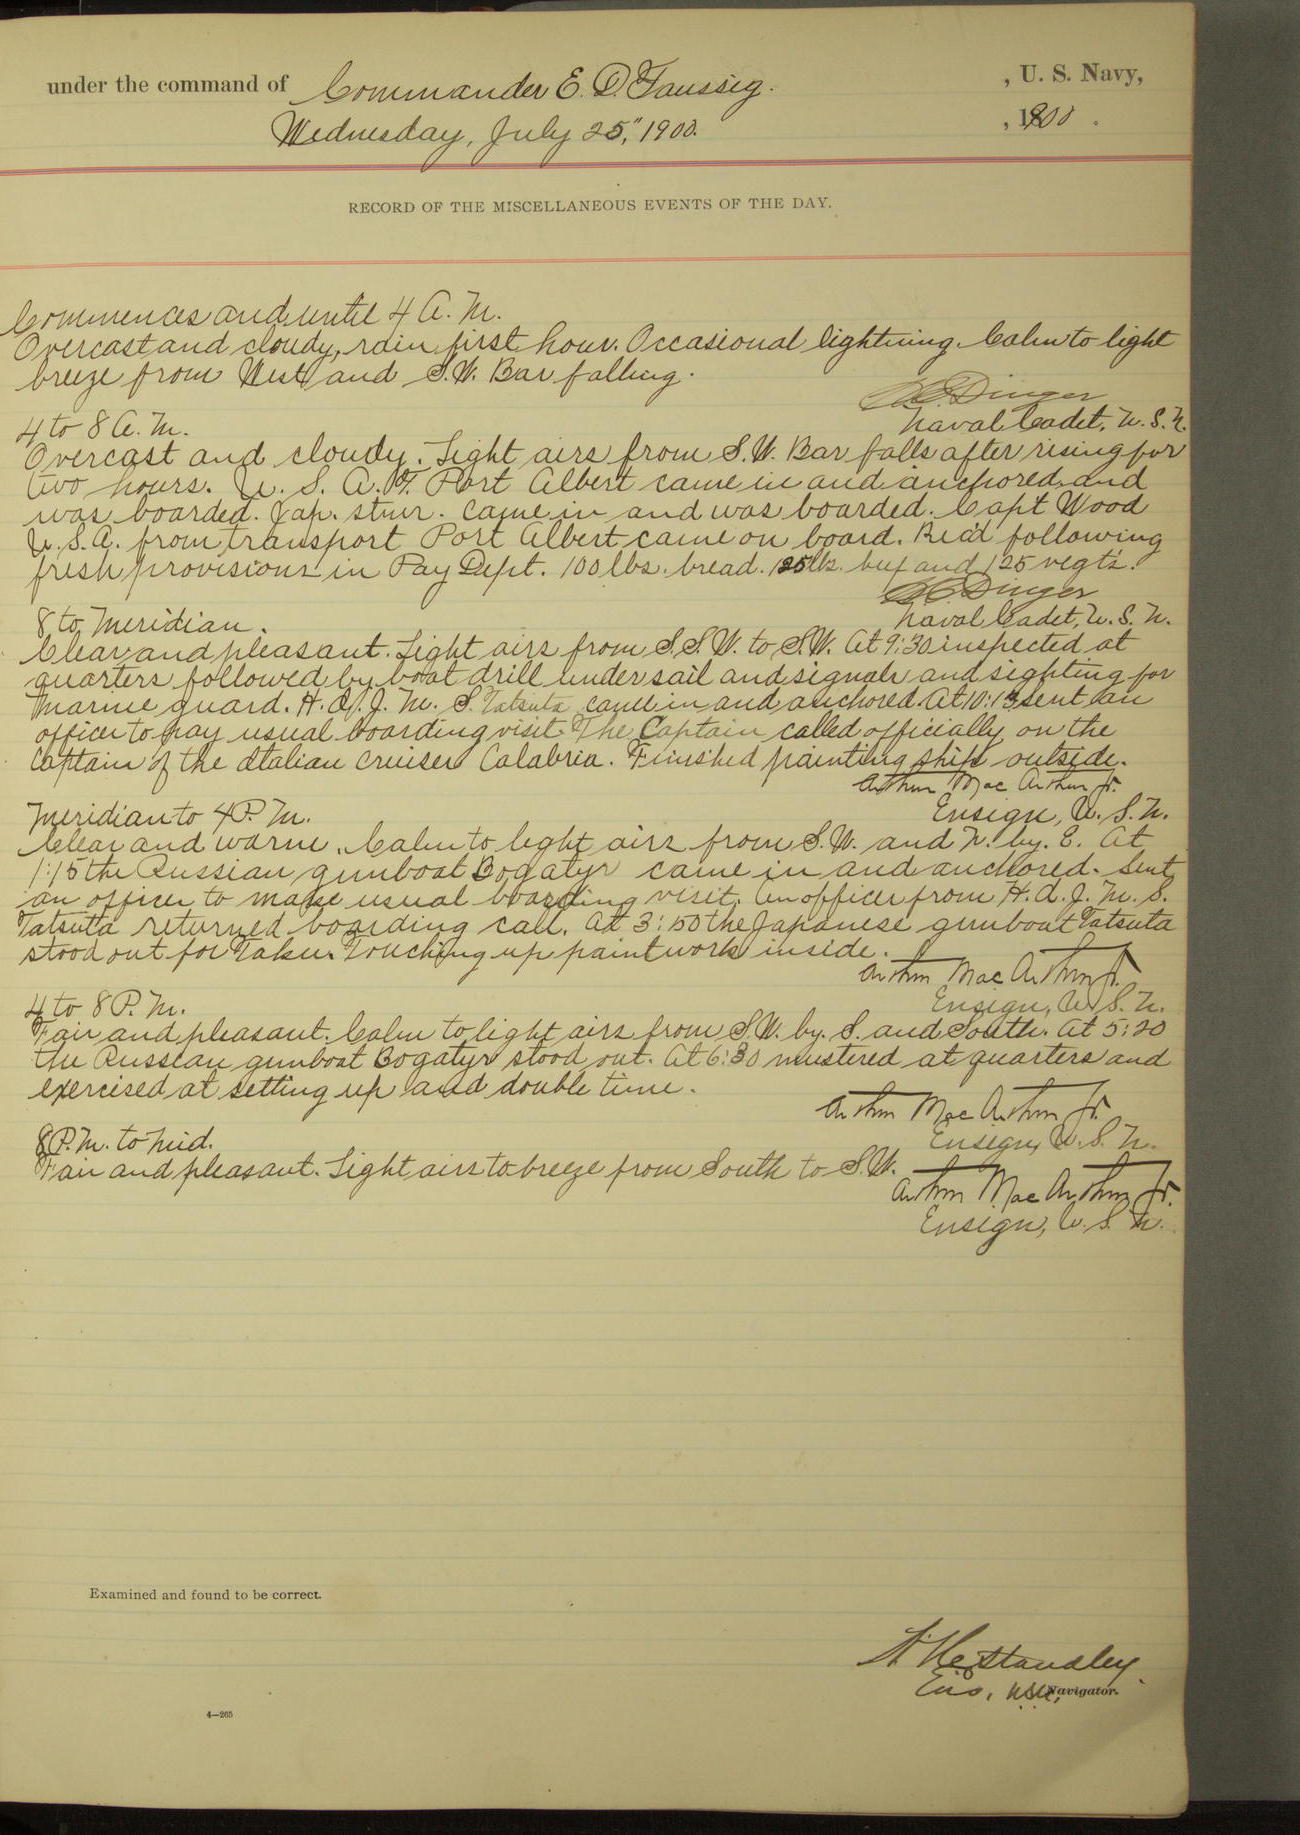 under the command of Commander E. D. Taussig. , U. S. Navy,
Wednesday, July 25," 1900. , 1900 .
RECORD OF THE MISCELLANEOUS EVENTS OF THE DAY.
Commences and until 4 A. M.
Overcast and cloudy, rain first hour. Occasional lightning. Calm to light
breeze from West and S.W. Bar falling.
Dinger
Naval Cadet, U. S. N.
4 to 8 A. M.
Overcast and cloudy. Light airs from S.W. Bar falls after rising for
two hours. U. S. A. T. Port Albert came in and anchored and
was boarded. Jap. stmr. came in and was boarded. Capt Wood
U.S.A. from transport Port Albert came on board. Rec'd following
fresh provisions in Pay Dept. 100 lbs. bread. 125 lbs. beef and 125 vegt's.
Dinger
Naval Cadet, U. S. N.
8 to Meridian.
Clear and pleasant. Light airs from S.S.W. to S.W. At 9:30 inspected at
quarters followed by boat drill under sail and signals and sighting for
Marine guard. H. I. J. M. S. Tatsuta came in and anchored. At 10:15 sent an
officer to pay usual boarding visit. The Captain called officially on the
Captain of the Italian Cruiser Calabria. Finished painting ship outside.
Arthur Mac Arthur Jr.
Ensign, U. S. N.
Meridian to 4 P. M.
Clear and warm. Calm to light airs from S.W. and N. by. E. At
1:15 the Russian gunboat Bogatyr came in and anchored. Sent
an officer to make usual boarding visit. An officer from H. I. J. M. S.
Tatsuta returned boarding call. At 3:50 the Japanese gunboat Tatsuta
stood out for Taku. Touching up paint work inside.
Arthur Mac Arthur Jr.
Ensign, U. S. N.
4 to 8 P. M.
Fair and pleasant. Calm to light airs from S.W. by. S. and South. At 5:20
the Russian gunboat Bogatyr stood out. At 6:30 mustered at quarters and
exercised at setting up and double time.
Arthur Mac Arthur Jr.
Ensign, U. S. N.
8 P. M. to Mid.
Fair and pleasant. Light airs to breeze from South to S.W.
Arthur Mac Arthur Jr.
Ensign, U. S. N.
Examined and found to be correct.
Standley
Navigator.
4—265